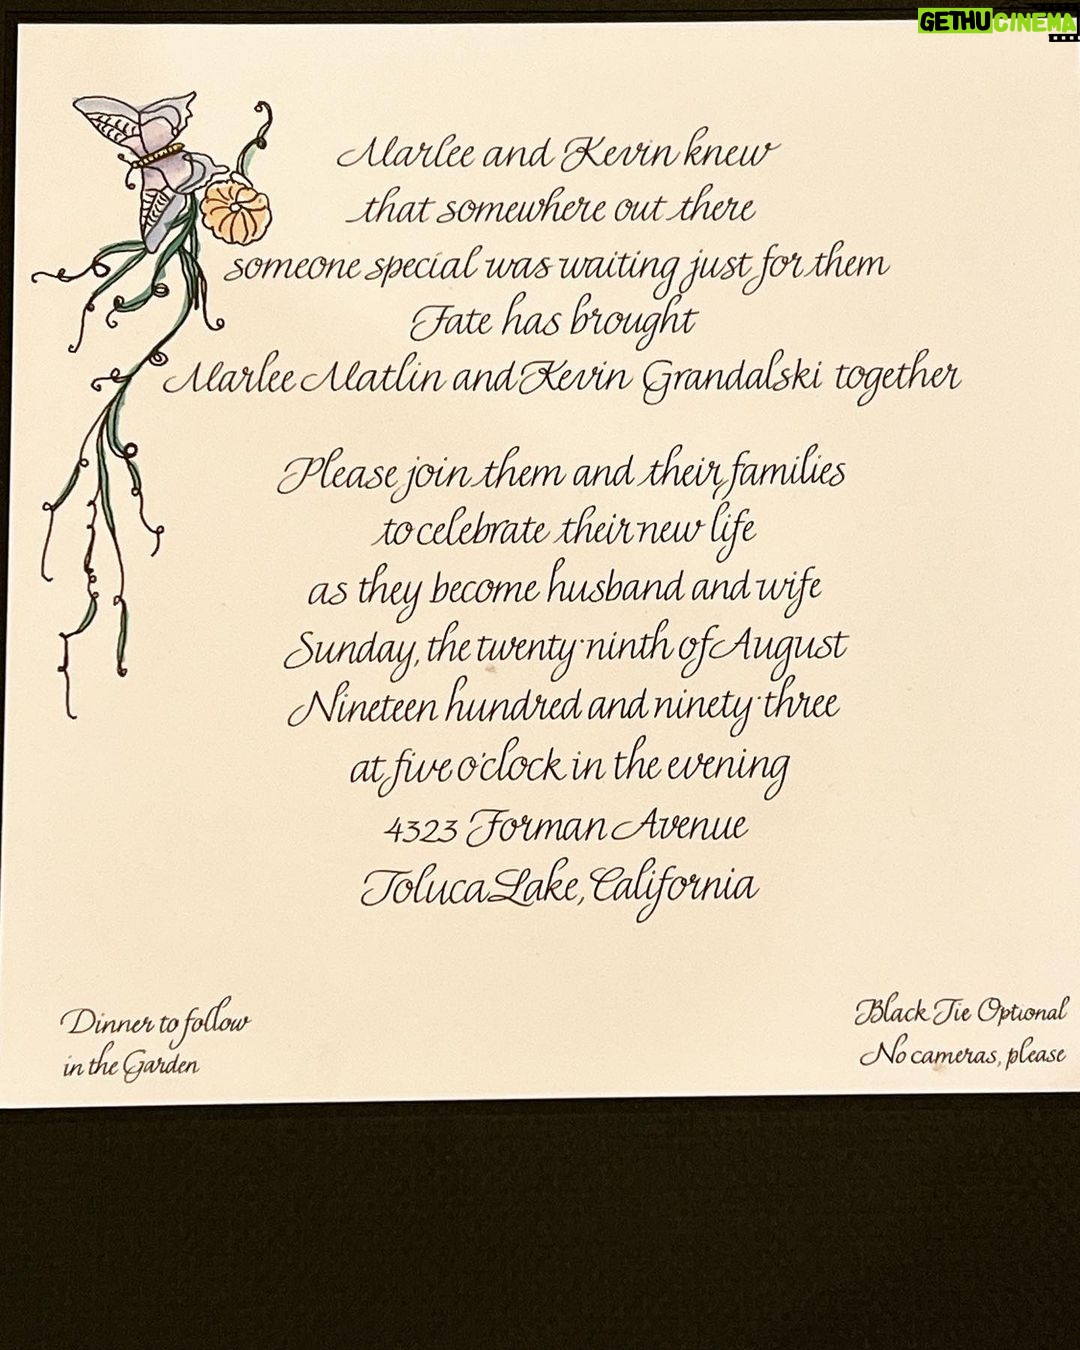 GETHUCINEMA
Marlee and Kevin knew
that somewhere out there
someone special was waiting just for them
Fate has brought
Marlee Matlin and Kevin Grandalski together
Please join them and their families
to celebrate their new life
as they become husband and wife
Sunday, the twenty-ninth of August
Nineteen hundred and ninety-three
at five o'clock in the evening
4323 Forman Avenue
Toluca Lake, California
Dinner to follow
in the Garden
Black Tie Optional
No cameras, please